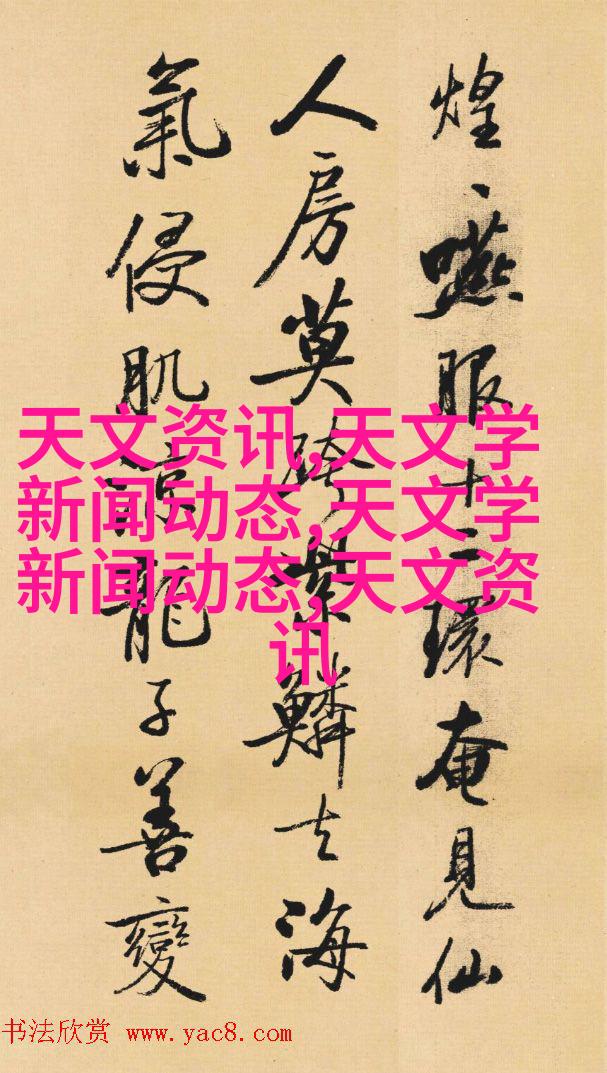 煌、嚥服十二環奄見仙
人房莫跨紫鱗去海
氣侵肌涼龍子善變
天文资讯,天文学
新闻动态,天文学
新闻动态,天文资
讯
书法欣赏 www.yac8.com